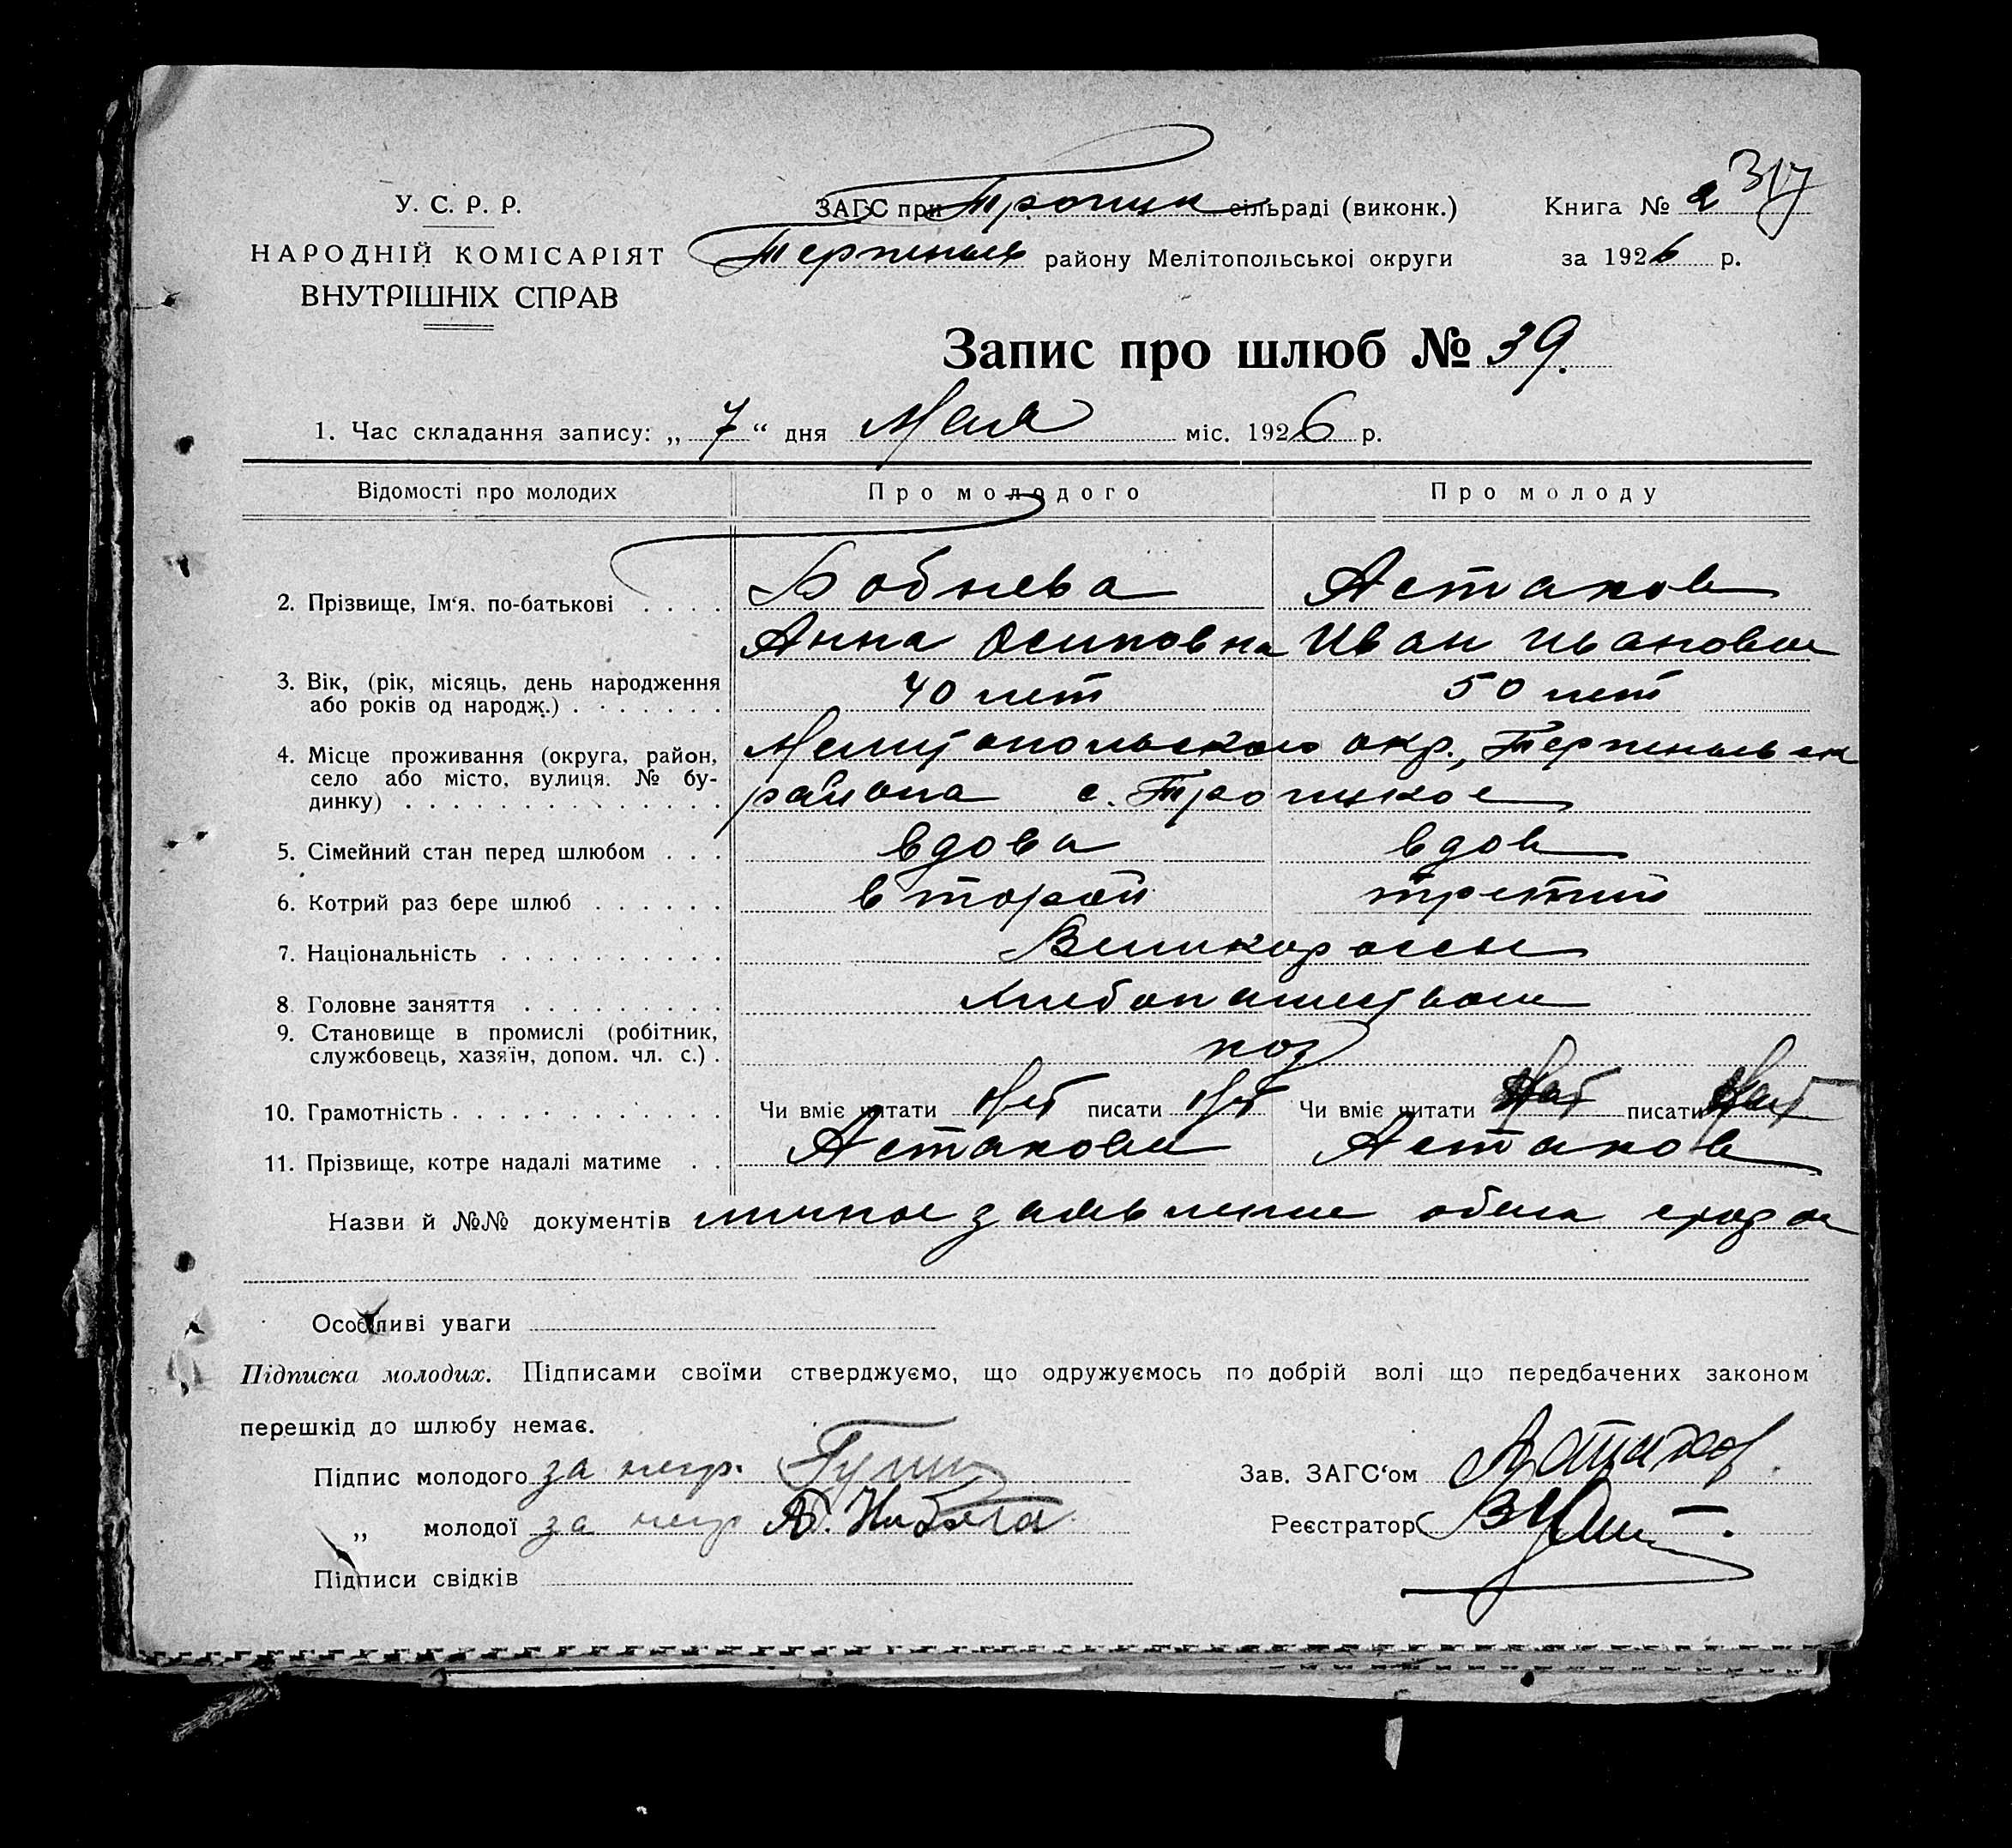 317
У. С. Р. Р.
НАРОДНІЙ КОМІСАРІЯТ
ВНУТРІШНІХ СПРАВ
ЗАГС при Троицк сільраді (виконк.)
Терпеньев району Мелітопольської округи
Книга № 2
за 1926 р.
Запис про шлюб № 39.
1. Час складання запису: „ 7 “ дня Мая міс. 1926 р.
Відомості про молодих Про молодого Про молоду
2. Прізвище, Ім‘я. по-батькові . . . . Бобнева Астахов
Анна Осиповна Иван Иванович
3. Вік, (рік, місяць, день народження
або років од народж.) . . . . . . . 40 лет 50 лет
4. Місце проживання (округа, район,
село або місто, вулиця. № бу-
динку) . . . . . . . . . . . . . .
Мелитопольского окр., Терпеньевск
района с. Троицкое
5. Сімейний стан перед шлюбом . . . вдова вдов
6. Котрий раз бере шлюб . . . . . . второй третий
7. Національність . . . . . . . . . . Великороссы
8. Головне заняття . . . . . . . . . Хлебопашество
9. Становище в промислі (робітник,
службовець, хазяїн, допом. чл. с.) . хоз
10. Грамотність . . . . . . . . . . . . Чи вміє читати Нет писати Нет Чи вміє читати писати
11. Прізвище, котре надалі матиме . . Астахова Астахов
Назви й №№ документів личное заявление обеих сторон
Особливі уваги
Підписка молодих. Підписами своїми стверджуємо, що одружуємось по добрій волі що передбачених законом
перешкід до шлюбу немає.
Підпис молодого за негр.
„ молодої за негр
Підписи свідків
Зав. ЗАГС‘ом
Реєстратор